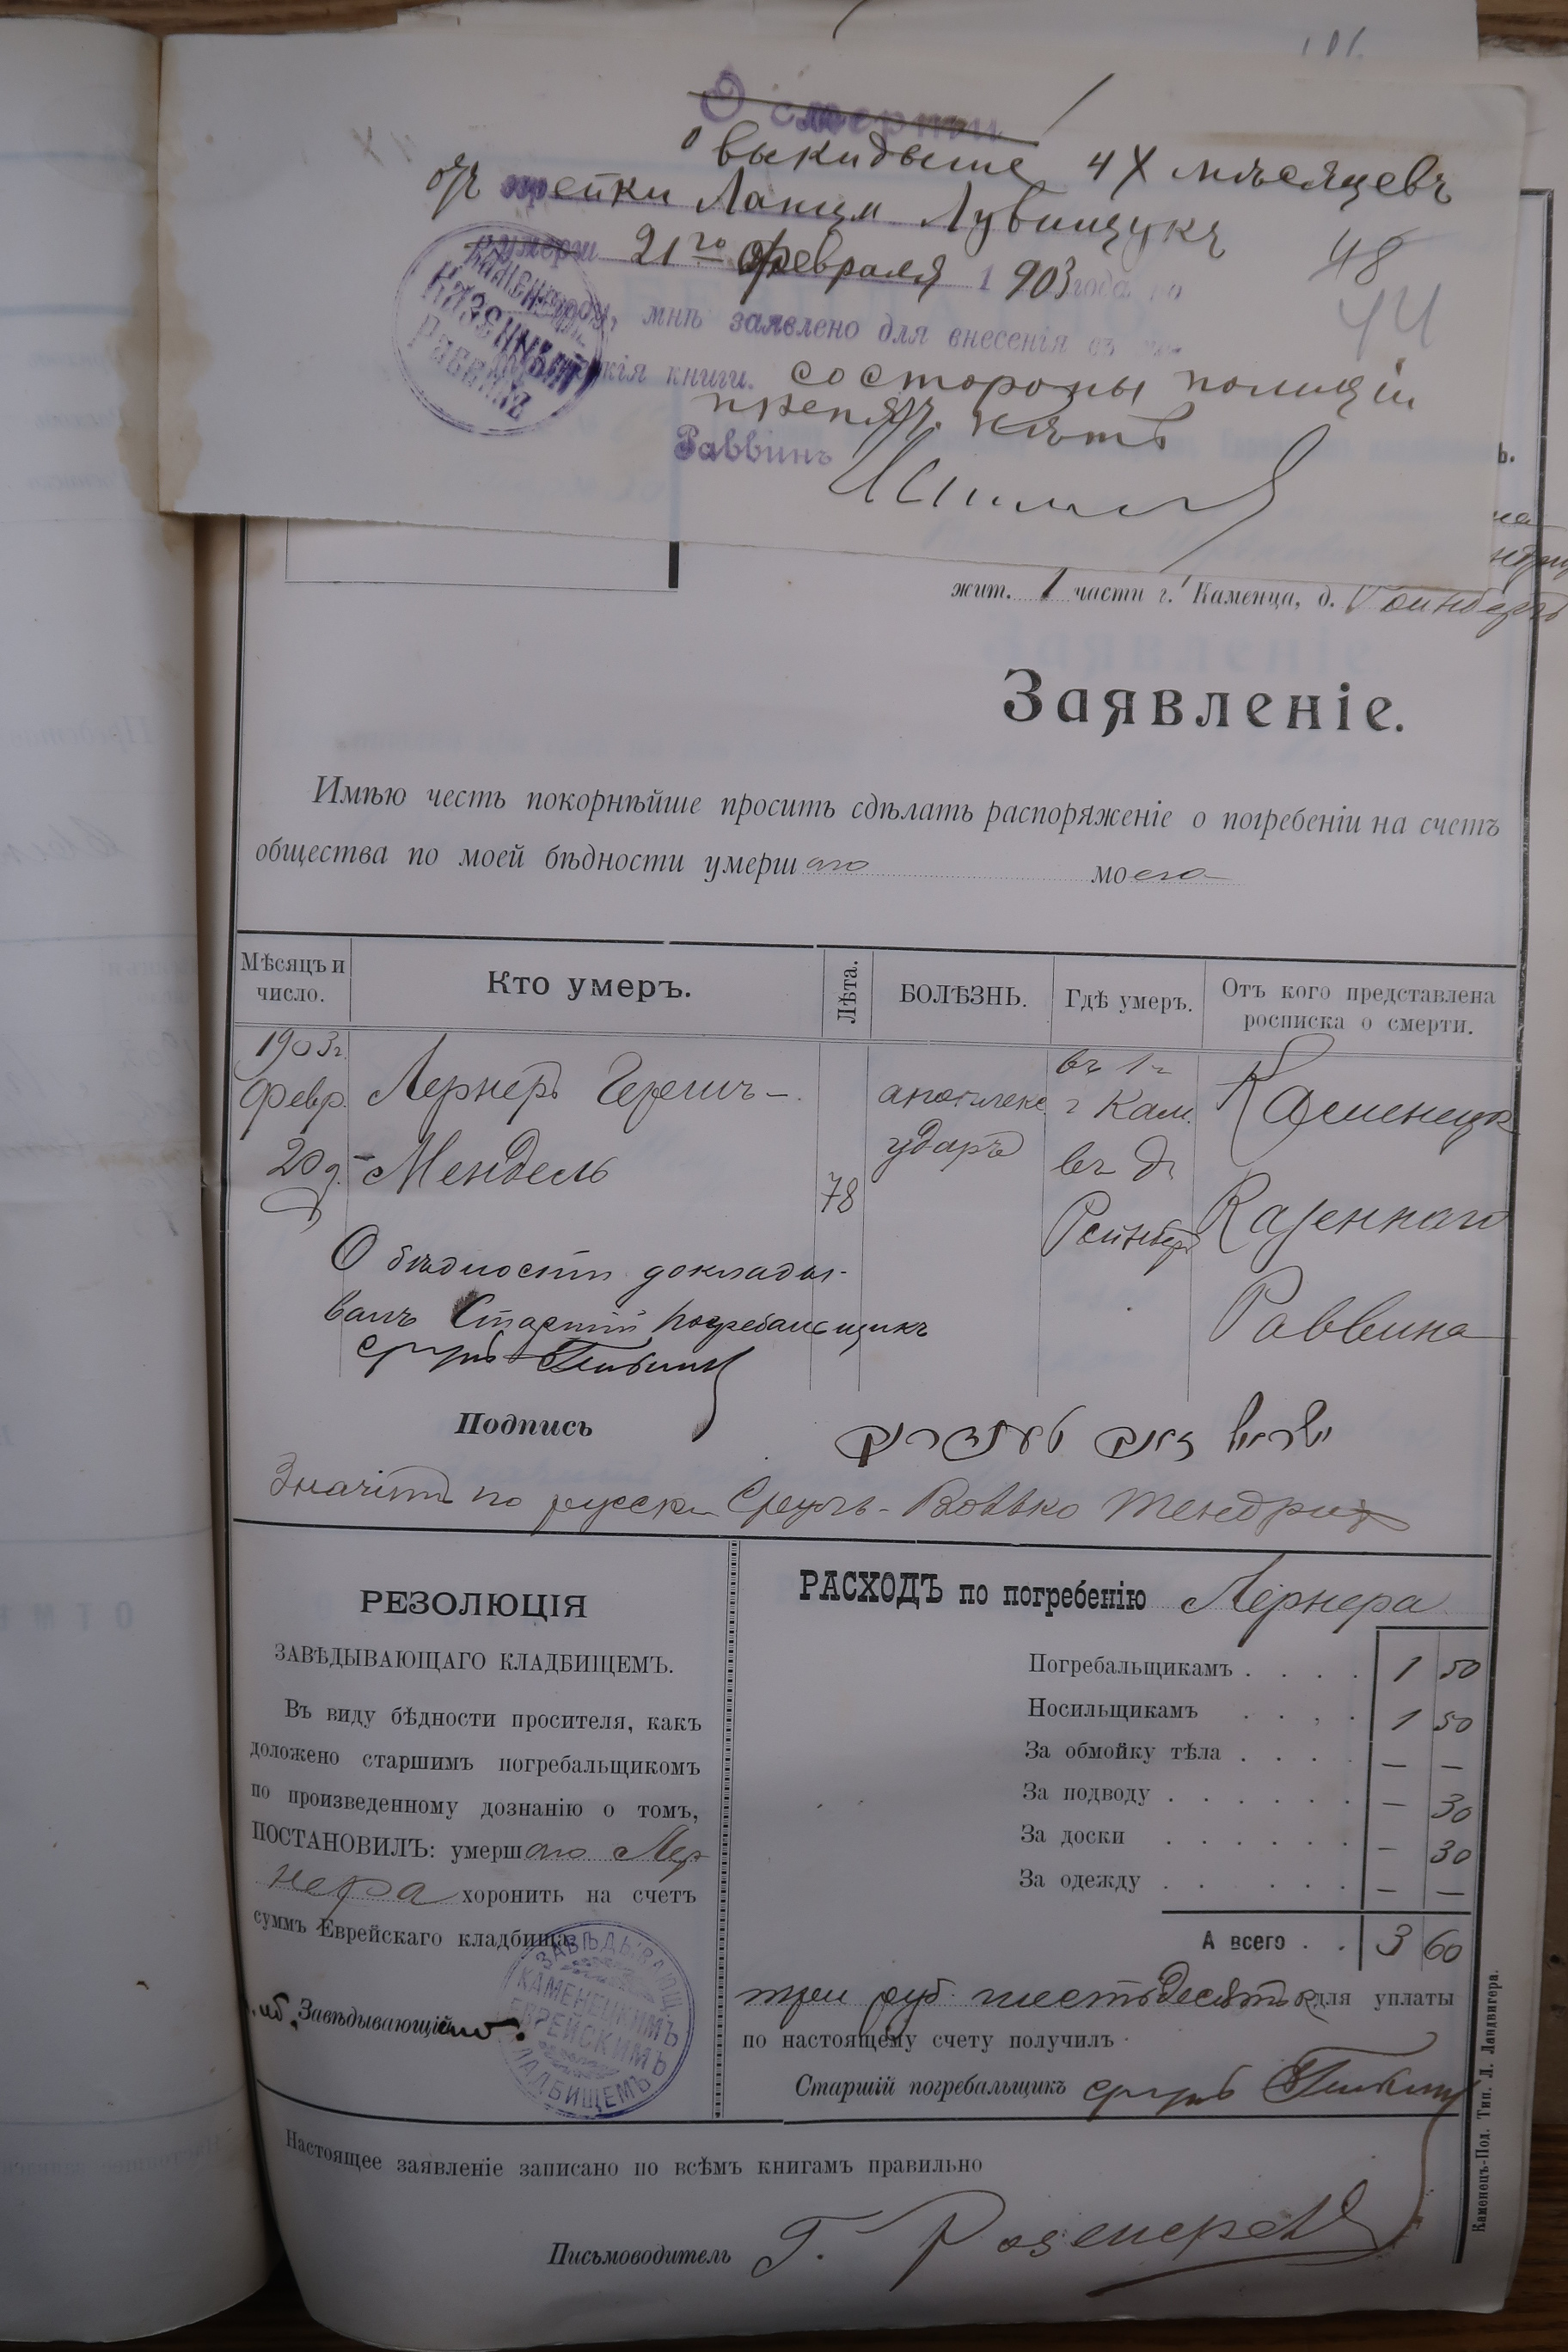 О смерти
о выкидыше 4х месяцевъ
отъ еврейки
умерш 21го Февраля 1903 года
мнѣ заявлено для внесенія въ
книги. со стороны полиціи
препят. нѣтъ
Раввинъ
КАЗЕННЫЙ
РАВВИНЪ
48
44
жит. 1 части г. Каменца, д.
Заявленіе.
Имѣю честь покорнѣйше просить сдѣлать распоряженіе о погребеніи на счетъ
общества по моей бѣдности умершаго моего
Мѣсяцъ и число. Кто умеръ. Лѣта. БОЛѢЗНЬ. Гдѣ умеръ. Отъ кого представлена росписка о смерти.
1903г. Февр. 20 д. Лернеръ Гершъ-Мендель 78 апоплекс. ударъ въ 1 ч г Кам. въ д Каменецк Казеннаго Раввина
О бѣдности доклады-
валъ Старшій погребальщикъ
Подпись
Значитъ по русски Сруль-Волько
РЕЗОЛЮЦІЯ
ЗАВѢДЫВАЮЩАГО КЛАДБИЩЕМЪ.
Въ виду бѣдности просителя, какъ
доложено старшимъ погребальщикомъ
по произведенному дознанію о томъ,
ПОСТАНОВИЛЪ: умершаго Лер-
нера хоронить на счетъ
суммъ Еврейскаго кладбища.
Завѣдывающій
ЗАВѢДЫВАЮЩ.
КАМЕНЕЦКИМЪ
ЕВРЕЙСКИМЪ
КЛАДБИЩЕМЪ
РАСХОДЪ по погребенію Лернера
Погребальщикамъ . . . . 1 50
Носильщикамъ . . . . 1 50
За обмойку тѣла . . . . — —
За подводу . . . . . . — 30
За доски . . . . . . — 30
За одежду . . . . . . — —
А всего . . 3 60
три руб. шестьдесятъ к для уплаты
по настоящему счету получилъ
Старшій погребальщикъ
Настоящее заявленіе записано по всѣмъ книгамъ правильно
Письмоводитель Г.
Каменецъ-Под. Тип. Л. Ландвигера.